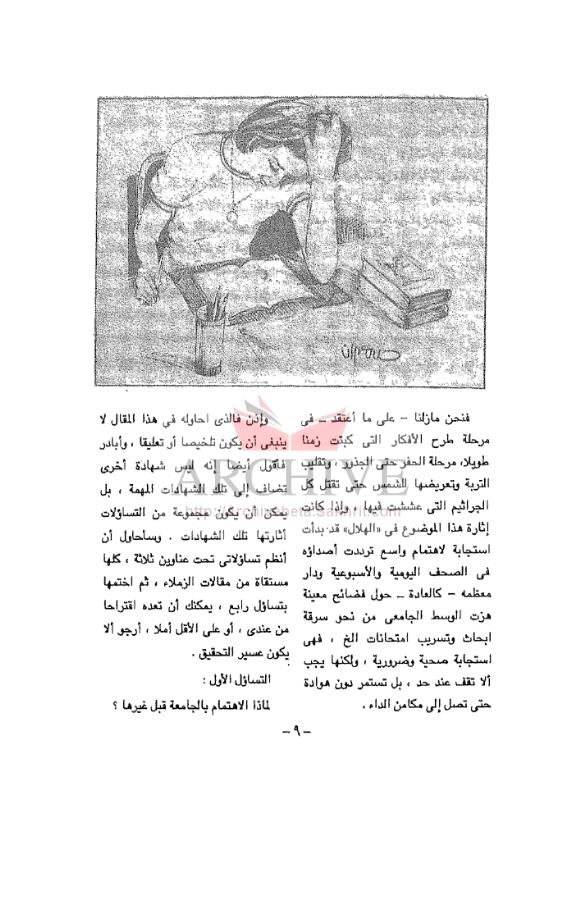 فنحن مازلنا – على ما أعتقد – فى
مرحلة طرح الأفكار التى كبتت زمنا
طويلا، مرحلة الحفر حتى الجذور ، وتقليب
التربة وتعريضها للشمس حتى تقتل كل
الجراثيم التى عششت فيها ، وإذا كانت
إثارة هذا الموضوع فى «الهلال» قد بدأت
استجابة لاهتمام واسع ترددت أصداؤه
فى الصحف اليومية والأسبوعية ودار
معظمه – كالعادة – حول فضائح معينة
هزت الوسط الجامعى من نحو سرقة
ابحاث وتسريب امتحانات الخ ، فهى
استجابة صحية وضرورية ، ولكنها يجب
ألا تقف عند حد ، بل تستمر دون هوادة
حتى تصل إلى مكامن الداء .
وإذن فالذى احاوله فى هذا المقال لا
ينبغى أن يكون تلخيصا أو تعليقا ، وأبادر
فأقول أيضا إنه ليس شهادة أخرى
تضاف إلى تلك الشهادات المهمة ، بل
يمكن أن يكون مجموعة من التساؤلات
أثارتها تلك الشهادات . وسأحاول أن
أنظم تساؤلاتى تحت عناوين ثلاثة ، كلها
مستقاة من مقالات الزملاء ، ثم اختمها
بتساؤل رابع ، يمكنك أن تعده اقتراحا
من عندى ، أو على الأقل أملا ، أرجو ألا
يكون عسير التحقيق .
التساؤل الأول :
لماذا الاهتمام بالجامعة قبل غيرها ؟
– ٩ –
ARCHIVE